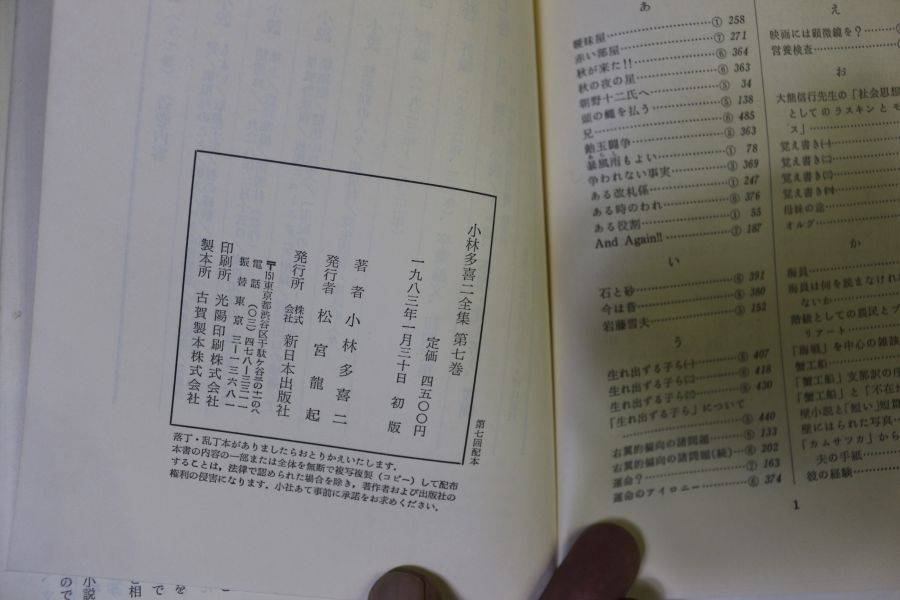 小林多喜二全集 第七巻
定価 四五〇〇円
一九八三年一月三十日 初版
著者 小林多喜二
発行者 松宮龍起
発行所 株式会社 新日本出版社
〒151 東京都渋谷区千駄ケ谷四の十一のへ
電話(〇三)四七八―三三一一
振替 東京 三―一三六八一
印刷所 光陽印刷株式会社
製本所 古賀製本株式会社
第七回配本
落丁・乱丁本がありましたらおとりかえいたします.
本書の内容の一部または全体を無断で複写複製(コピー)して配布
することは,法律で認められた場合を除き,著作者および出版社の
権利の侵害になります.小社あて事前に承諾をお求めください.
あ
曖昧屋……① 258
赤い部屋……⑦ 271
秋が来た!!……⑥ 364
秋の夜の星……⑥ 363
朝野十二氏へ……⑤ 34
頭の蠅を払う……⑤ 138
兄……⑥ 485
飴玉闘争……⑧ 363
暴風雨もよい……① 78
争われない事実……③ 369
ある改札係……① 247
ある時のわれ……⑥ 376
ある役割……① 55
And Again!!……① 187
い
石と砂……⑥ 391
今は昔……⑥ 380
岩藤雪夫……⑤ 152
う
生れ出ずる子ら㈠……⑥ 407
生れ出ずる子ら㈡……⑥ 418
生れ出ずる子ら㈢……⑥ 430
「生れ出ずる子ら」について
……⑤ 440
右翼的偏向の諸問題……⑥ 133
右翼的偏向の諸問題(続)……⑥ 202
運命?……⑦ 163
運命のアイロニー……⑥ 374
え
映画には顕微鏡を?……
営養検査……
お
大熊信行先生の「社会思想
としてのラスキンとモ
ス」……
覚え書き㈠
覚え書き㈡
覚え書き㈢
覚え書き㈣
母妹の途……
オルグ……
か
海員……
海員は何を読まなけれ
ないか……
階級としての農民とプ
リアート……
「海戦」を中心の雑談
蟹工船……
「蟹工船」支那訳の序
「蟹工船」と「不在地
壁小説と「短い」短篇
壁にはられた写真…
「カムサツカ」から
夫の手紙……
彼の経験……
1